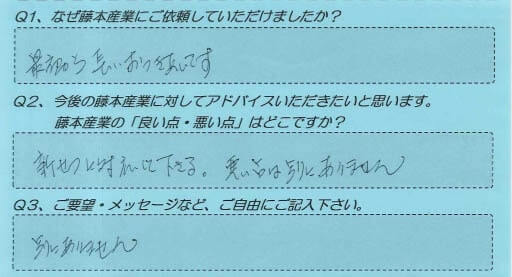 Q1、なぜ藤本産業にご依頼していただけましたか？
最初から長いおつき合いです
Q2、今後の藤本産業に対してアドバイスいただきたいと思います。
藤本産業の「良い点・悪い点」はどこですか？
対応して下さる。悪い点は別にありません
Q3、ご要望・メッセージなど、ご自由にご記入下さい。
別にありません